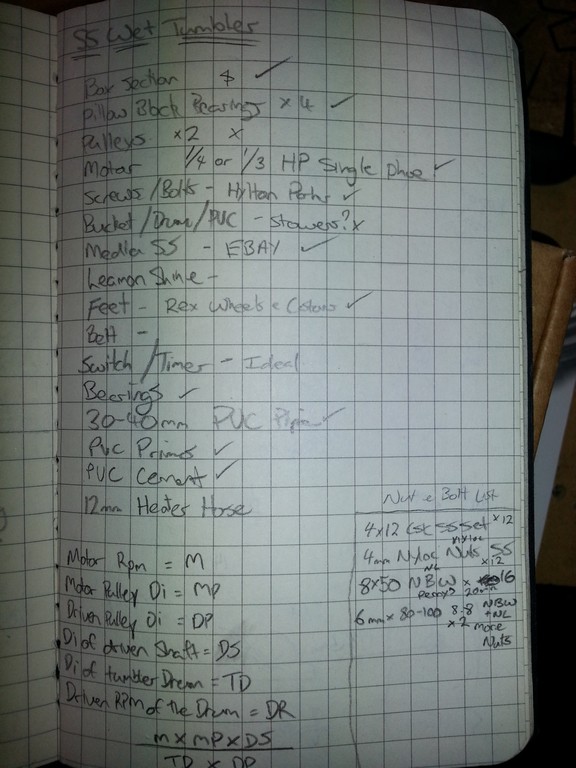 SS Wet Tumbler
Bar Section $ ✓
Pillow Block Bearings x 4 ✓
Pulleys x2 x
Motor 1/4 or 1/3 HP Single Phase ✓
Screws/Bolts - Hylton Parks ✓
Bucket/Drum/PVC - Stowers? x
Media SS - EBAY ✓
Leamon Shine -
Feet - Rex Wheels & Castors ✓
Belt -
Switch/Timer - Ideal
Bearings ✓
30-40mm PVC Pipe ✓
PVC Primer ✓
PVC Cement ✓
12mm Heater Hose
Motor Rpm = M
Motor Pulley Di = MP
Driven Pulley Di = DP
Di of driven Shaft = DS
Di of tumbler Drum = TD
Driven RPM of the Drum = DR
M x MP x DS
TD x DP
Nut & Bolt List
4x12 Csk SS Set x12
4mm Nyloc Nuts SS
x12
8x50 NBW x 16
20mm
6mm x 80-100 8-8 NBW
+NL
x2 more
Nuts